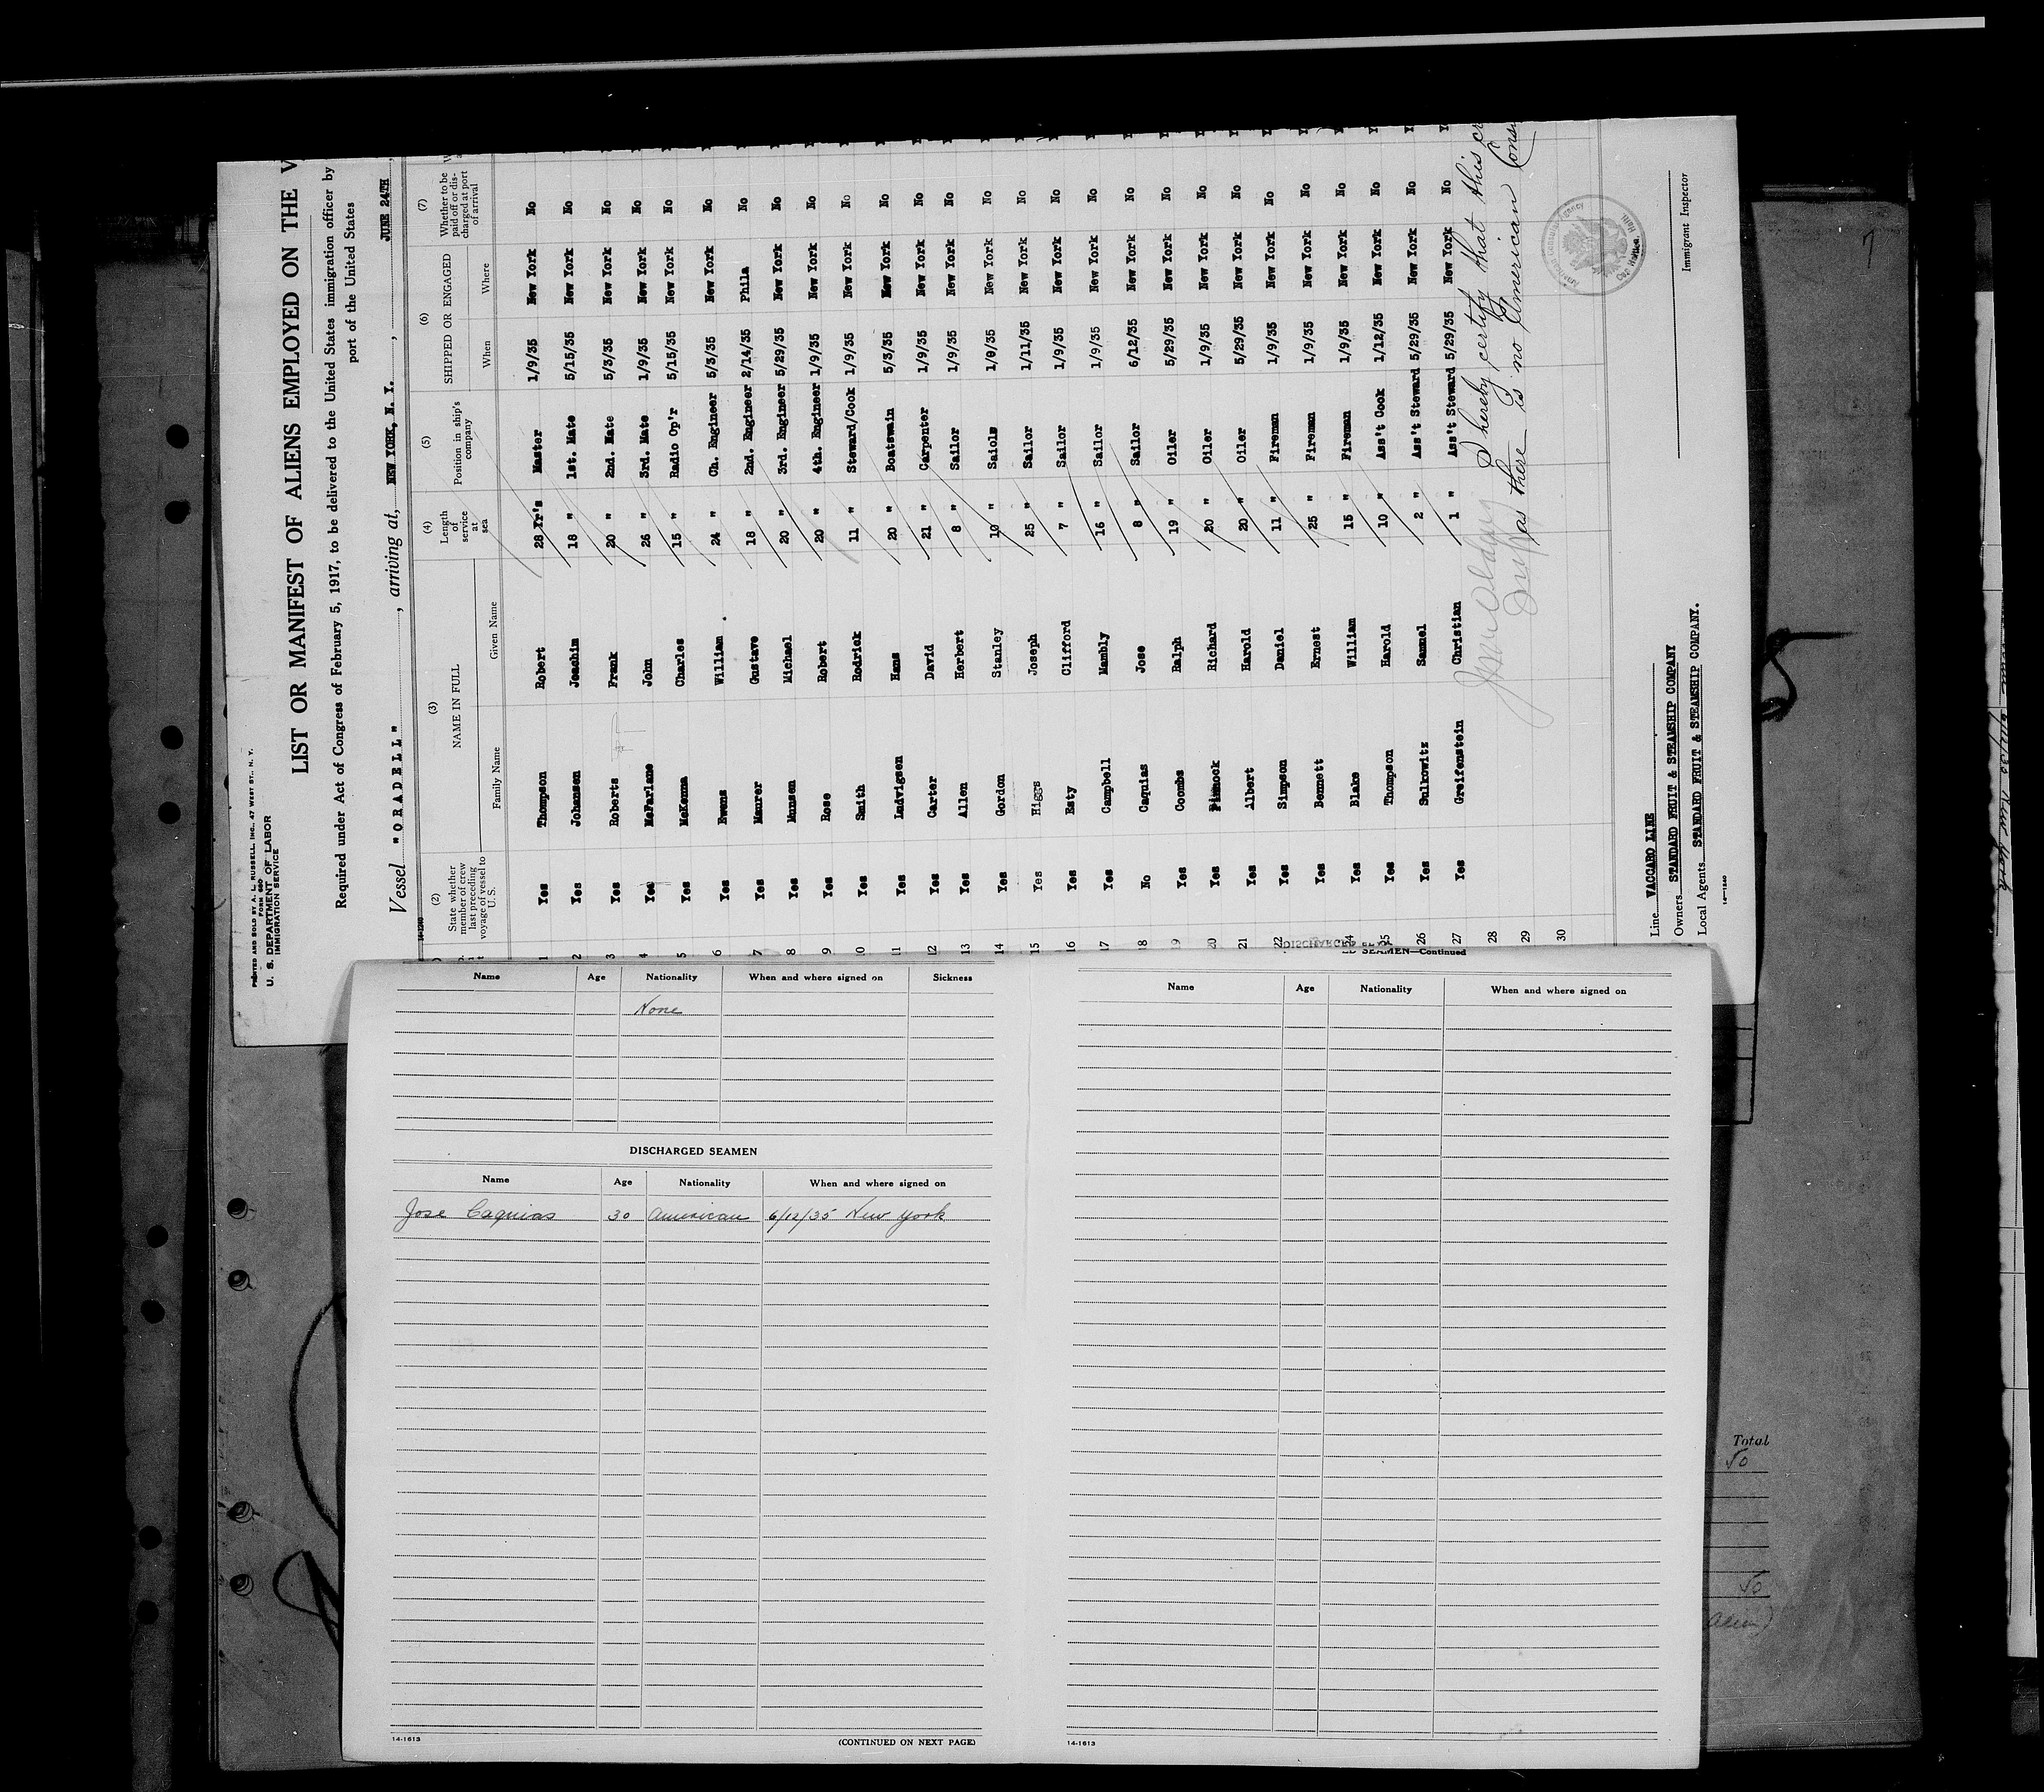 PRINTED AND SOLD BY A. L. RUSSELL, INC., 47 WEST ST., N. Y.
FORM 680
U. S. DEPARTMENT OF LABOR
IMMIGRATION SERVICE
LIST OR MANIFEST OF ALIENS EMPLOYED ON THE V
Required under Act of Congress of February 5, 1917, to be delivered to the United States immigration officer by
port of the United States
Vessel "ORADELL", arriving at, NEW YORK, N. Y., JUNE 24TH,
(2) (3) (4) (5) (6) (7)
State whether member of crew last preceding voyage of vessel to U. S. NAME IN FULL Length of service at sea Position in ship's company SHIPPED OR ENGAGED Whether to be paid off or discharged at port of arrival
Family Name Given Name When Where
1 Yes Thompson Robert 28 Yr's Master 1/9/35 New York No
2 Yes Johansen Joachim 18 " 1st. Mate 5/15/35 New York No
3 Yes Roberts Frank 20 " 2nd. Mate 5/3/35 New York No
4 Yes McFarlane John 26 " 3rd. Mate 1/9/35 New York No
5 Yes McKenna Charles 15 " Radio Op'r 5/15/35 New York No
6 Yes Ewens William 24 " Ch. Engineer 5/3/35 New York No
7 Yes Maurer Gustave 18 " 2nd. Engineer 2/14/35 Phila No
8 Yes Munsen Michael 20 " 3rd. Engineer 5/29/35 New York No
9 Yes Rose Robert 20 " 4th. Engineer 1/9/35 New York No
10 Yes Smith Rodrick 11 " Steward/Cook 1/9/35 New York No
11 Yes Ludvigsen Hans 20 " Boatswain 5/3/35 New York No
12 Yes Carter David 21 " Carpenter 1/9/35 New York No
13 Yes Allen Herbert 8 " Sailor 1/9/35 New York No
14 Yes Gordon Stanley 10 " New York No
15 Yes Higgs Joseph 25 " Sailor 1/11/35 New York No
16 Yes Esty Clifford 7 " Sailor 1/9/35 New York No
17 Yes Campbell Mambly 16 " Sailor 1/9/35 New York No
18 No Caquias Jose 8 " Sailor 6/12/35 New York No
19 Yes Coombs Ralph 19 " Oiler 5/29/35 New York No
20 Yes Pinnock Richard 20 " Oiler 1/9/35 New York No
21 Yes Albert Harold 20 " Oiler 5/29/35 New York No
22 Yes Simpson Daniel 11 " Fireman 1/9/35 New York No
Yes Bennett Ernest 25 " Fireman 1/9/35 New York No
24 Yes Blake William 15 " Fireman 1/9/35 New York No
25 Yes Thompson Harold 10 " Ass't Cook 1/12/35 New York No
26 Yes Sulkowitz Samuel 2 " Ass't Steward 5/29/35 New York No
27 Yes Greifenstein Christian 1 " Ass't Steward 5/29/35 New York No
28
29
30
I hereby certify that this
as there is no American
Line VACCARO LINE
Owners STANDARD FRUIT & STEAMSHIP COMPANY
Local Agents STANDARD FRUIT & STEAMSHIP COMPANY.
Immigrant Inspector
14-1240
Name Age Nationality When and where signed on Sickness
None
DISCHARGED SEAMEN
Name Age Nationality When and where signed on
Jose Caquias 30 American 6/12/35 New York
14-1613
(CONTINUED ON NEXT PAGE)
SEAMEN—Continued
Name Age Nationality When and where signed on
14-1613
Total
50
50